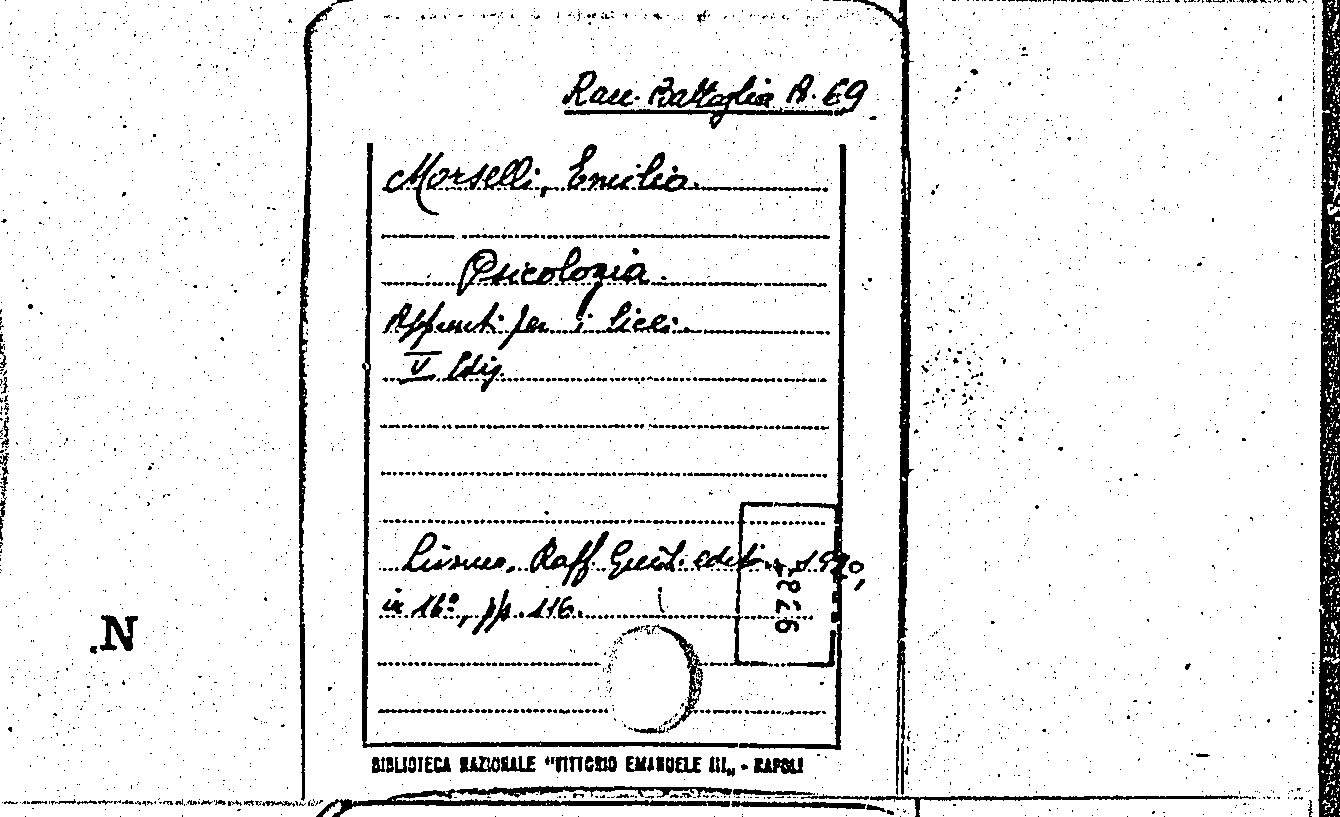 Racc. Battaglia A. 69
Morselli, Emilio.
Psicologia.
Appunti per i licei.
V Ediz.
Livorno, Raff. Giusti. edit.
in 16º, pp. 116.
BIBLIOTECA NAZIONALE "VITTORIO EMANUELE III„ - NAPOLI
N.